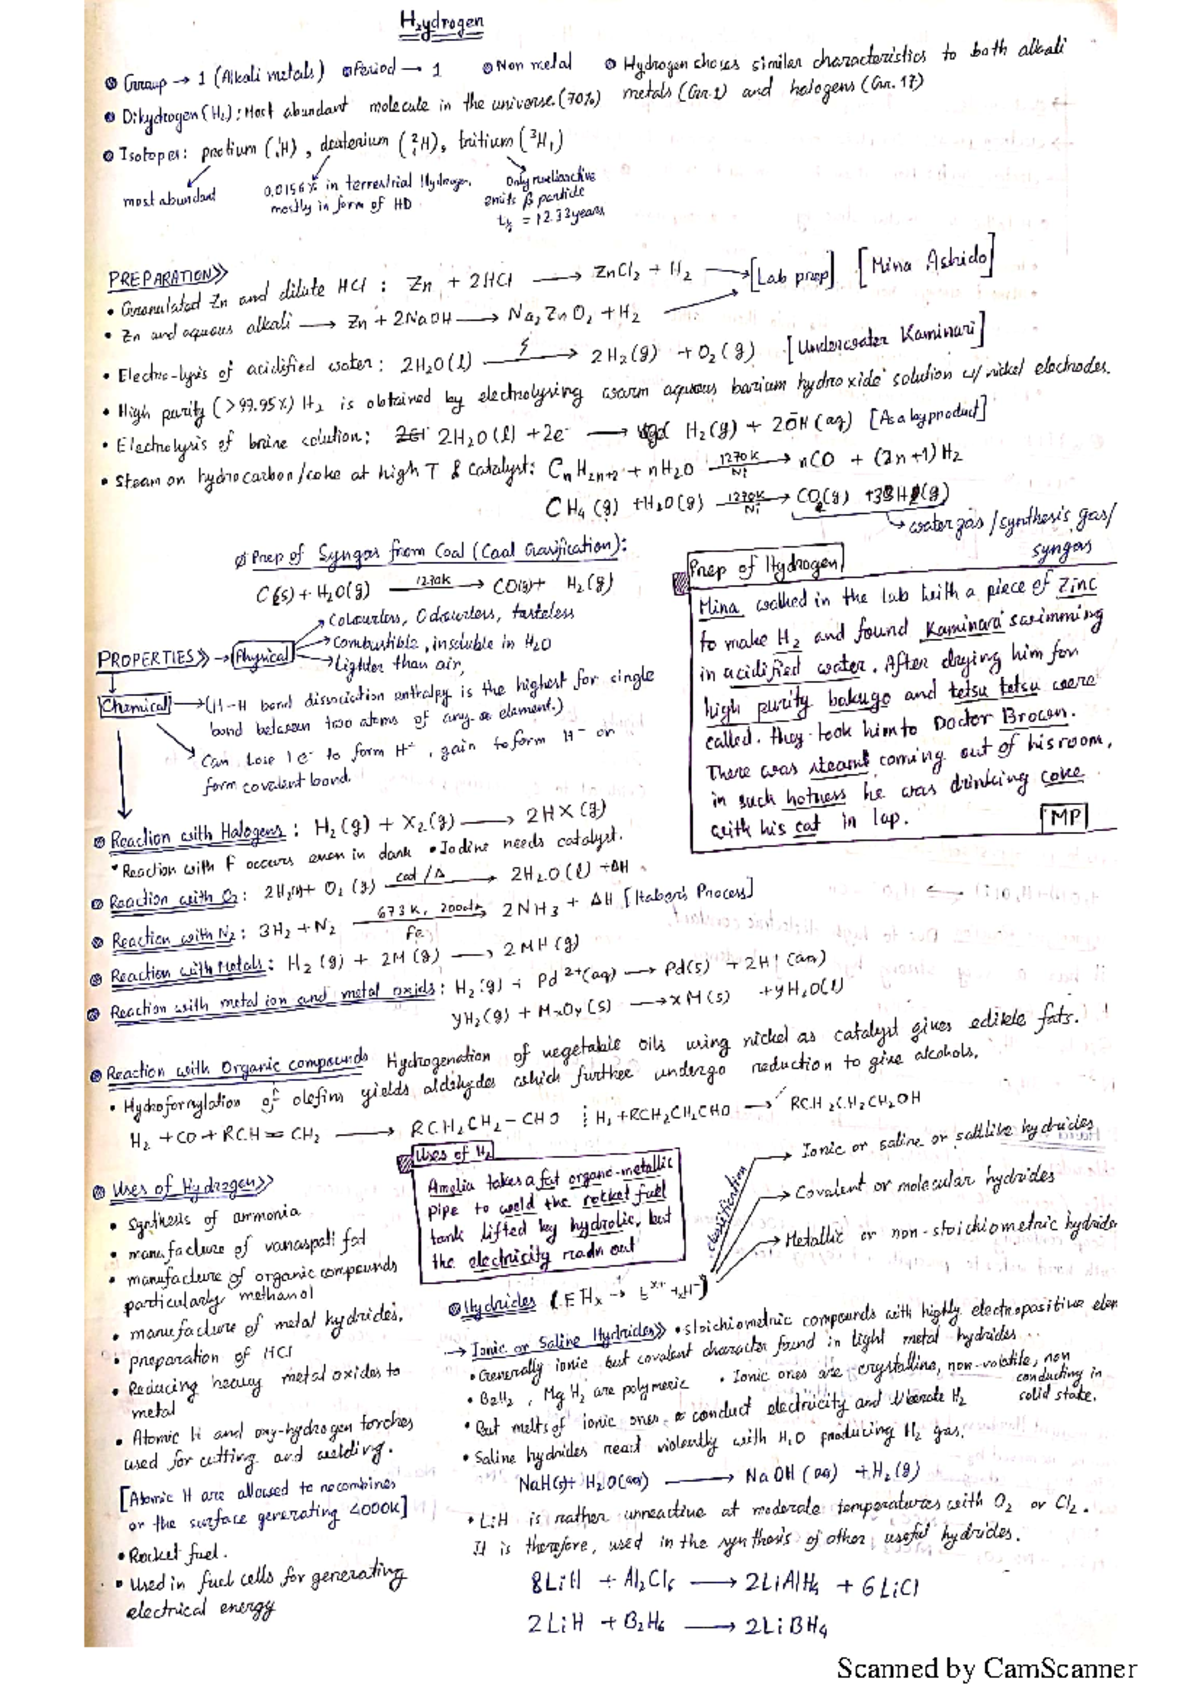 Hydrogen
Group → 1 (Alkali metals) Period → 1 Non metal Hydrogen shows similar characteristics to both alkali
metals (Gr. 1) and halogens (Gr. 17)
Dihydrogen (H₂): Most abundant molecule in the universe. (70%)
Isotopes: protium (¹₁H), deuterium (²₁H), tritium (³H₁)
most abundant
0.0156% in terrestrial Hydrogen.
mostly in form of HD
Only radioactive
emits β particle
t½ = 12.33 years
PREPARATION>>
• Granulated Zn and dilute HCl : Zn + 2HCl → ZnCl₂ + H₂ → [Lab prep] [Mina Ashido]
• Zn and aqueous alkali → Zn + 2NaOH → Na₂ZnO₂ + H₂
• Electro-lysis of acidified water : 2H₂O(l) → 2H₂(g) + O₂(g) [Underwater Kaminari]
• High purity (>99.95%) H₂ is obtained by electrolysing warm aqueous barium hydroxide solution w/ nickel electrodes.
• Electrolysis of brine solution: 2H₂O(l) + 2e⁻ → H₂(g) + 2ŌH(aq) [As a byproduct]
• Steam on hydrocarbon/coke at high T & Catalyst: CₙH₂ₙ₊₂ + nH₂O 1270K Ni → nCO + (2n+1)H₂
CH₄(g) + H₂O(g) 1270K Ni → CO(g) + 3H₂(g)
→ water gas / synthesis gas/
syngas
Prep of Syngas from Coal (Coal Gasification):
C(s) + H₂O(g) 1270K → CO(g) + H₂(g)
Prep of Hydrogen
Mina walked in the lab with a piece of Zinc
to make H₂ and found Kaminari swimming
in acidified water. After drying him for
high purity bakugo and tetsu tetsu were
called. they took him to Doctor Brown.
There was steam coming out of his room,
in such hotness he was drinking coke
with his cat in lap.
MP
PROPERTIES>> → Physical
→ Colourless, Odourless, tasteless
→ Combustible, insoluble in H₂O
→ Lighter than air,
Chemical → (H–H bond dissociation enthalpy is the highest for single
bond between two atoms of any element.)
Can lose 1e⁻ to form H⁺, gain to form H⁻ or
form covalent bond.
Reaction with Halogens : H₂(g) + X₂(g) → 2HX(g)
• Reaction with F occurs even in dark • Iodine needs catalyst.
Reaction with O₂ : 2H₂(g) + O₂(g) cat/Δ → 2H₂O(l) + ΔH
Reaction with N₂ : 3H₂ + N₂ 673K, 200atm Fe → 2NH₃ + ΔH [Haber's Process]
Reaction with Metals : H₂(g) + 2M(g) → 2MH(g)
Reaction with metal ion and metal oxids : H₂(g) + Pd²⁺(aq) → Pd(s) + 2H⁺(aq)
yH₂(g) + MₓOᵧ(s) → xM(s) + yH₂O(l)
Reaction with Organic compounds Hydrogenation of vegetable oils using nickel as catalyst gives edible fats.
• Hydroformylation of olefins yields aldehydes which further undergo reduction to give alcohols.
H₂ + CO + RCH=CH₂ → RCH₂CH₂–CHO H₂ + RCH₂CH₂CHO → RCH₂CH₂CH₂OH
Uses of H₂
Amelia takes a fat organo-metallic
pipe to weld the rocket fuel
tank lifted by hydrolic, but
the electricity readn out
Uses of Hydrogen>>
• Synthesis of ammonia
• manufacture of vanaspati fat
• manufacture of organic compounds
particularly methanol
• manufacture of metal hydrides.
• preparation of HCl
• Reducing heavy metal oxides to
metal
• Atomic H and oxy-hydrogen torches
used for cutting and welding.
[Atomic H are allowed to recombines
on the surface generating 4000K]
• Rocket fuel.
• Used in fuel cells for generating
electrical energy
classification
→ Ionic or saline or saltlike hydrides
→ Covalent or molecular hydrides
→ Metallic or non-stoichiometric hydride
Hydrides
→ Ionic or Saline Hydrides>> • stoichiometric compounds with highly electropositive elem
• Generally ionic but covalent character found in light metal hydrides
• BeH₂, MgH₂ are polymeric • Ionic ones are crystalline, non-volatile, non
conducting in
solid state.
• But melts of ionic ones conduct electricity and liberate H₂
• Saline hydrides react violently with H₂O producing H₂ gas.
NaH(s) + H₂O(aq) → NaOH(aq) + H₂(g)
• LiH is rather unreactive at moderate temperatures with O₂ or Cl₂.
It is therefore, used in the synthesis of other useful hydrides.
8LiH + Al₂Cl₆ → 2LiAlH₄ + 6LiCl
2LiH + B₂H₆ → 2LiBH₄
Scanned by CamScanner